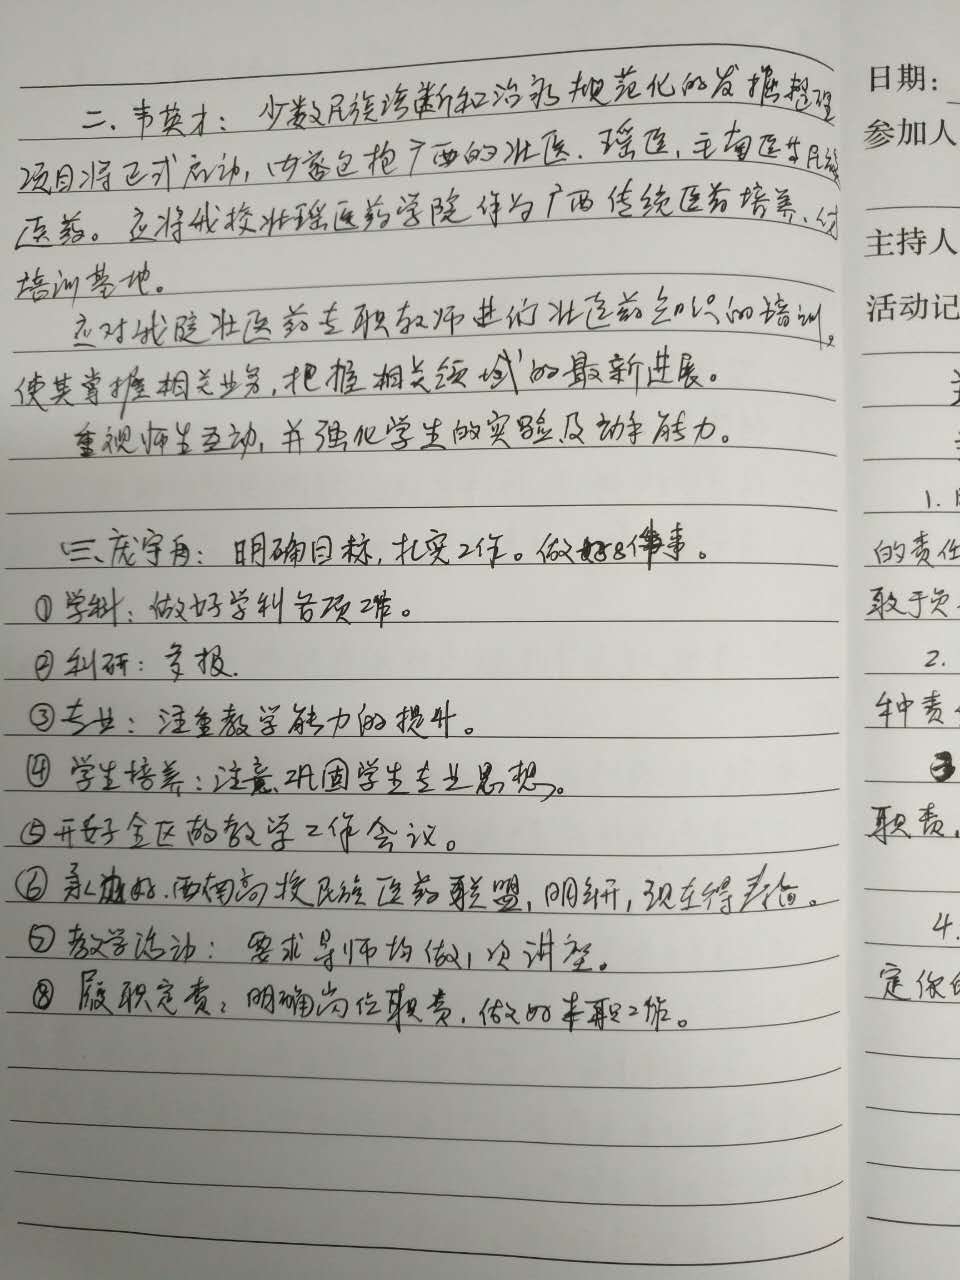 二、韦英才：少数民族诊断和治疗规范化的发掘整理
项目将正式启动，内容包括广西的壮医、瑶医、毛南医等民族
医药。应将我校壮瑶医药学院作为广西传统医药培养、
培训基地。
应对我院壮医药专职教师进行壮医药知识的培训。
使其掌握相关业务，把握相关领域的最新进展。
重视师生互动，并强化学生的实验及动手能力。
三、庞宇舟：明确目标，扎实工作。做好8件事。
①学科：做好学科各项工作。
②科研：多报.
③专业：注重教学能力的提升。
④学生培养：注意巩固学生专业思想。
⑤开好全区的教学工作会议。
⑥承办好西南高校民族医药联盟，
⑦教学活动：要求导师均做1次讲座。
⑧履职定责：明确岗位职责，做好本职工作。
日期：
参加人
主持人
活动记
1.
的责任
敢于负
2.
种责
3
职责，
4.
定你的